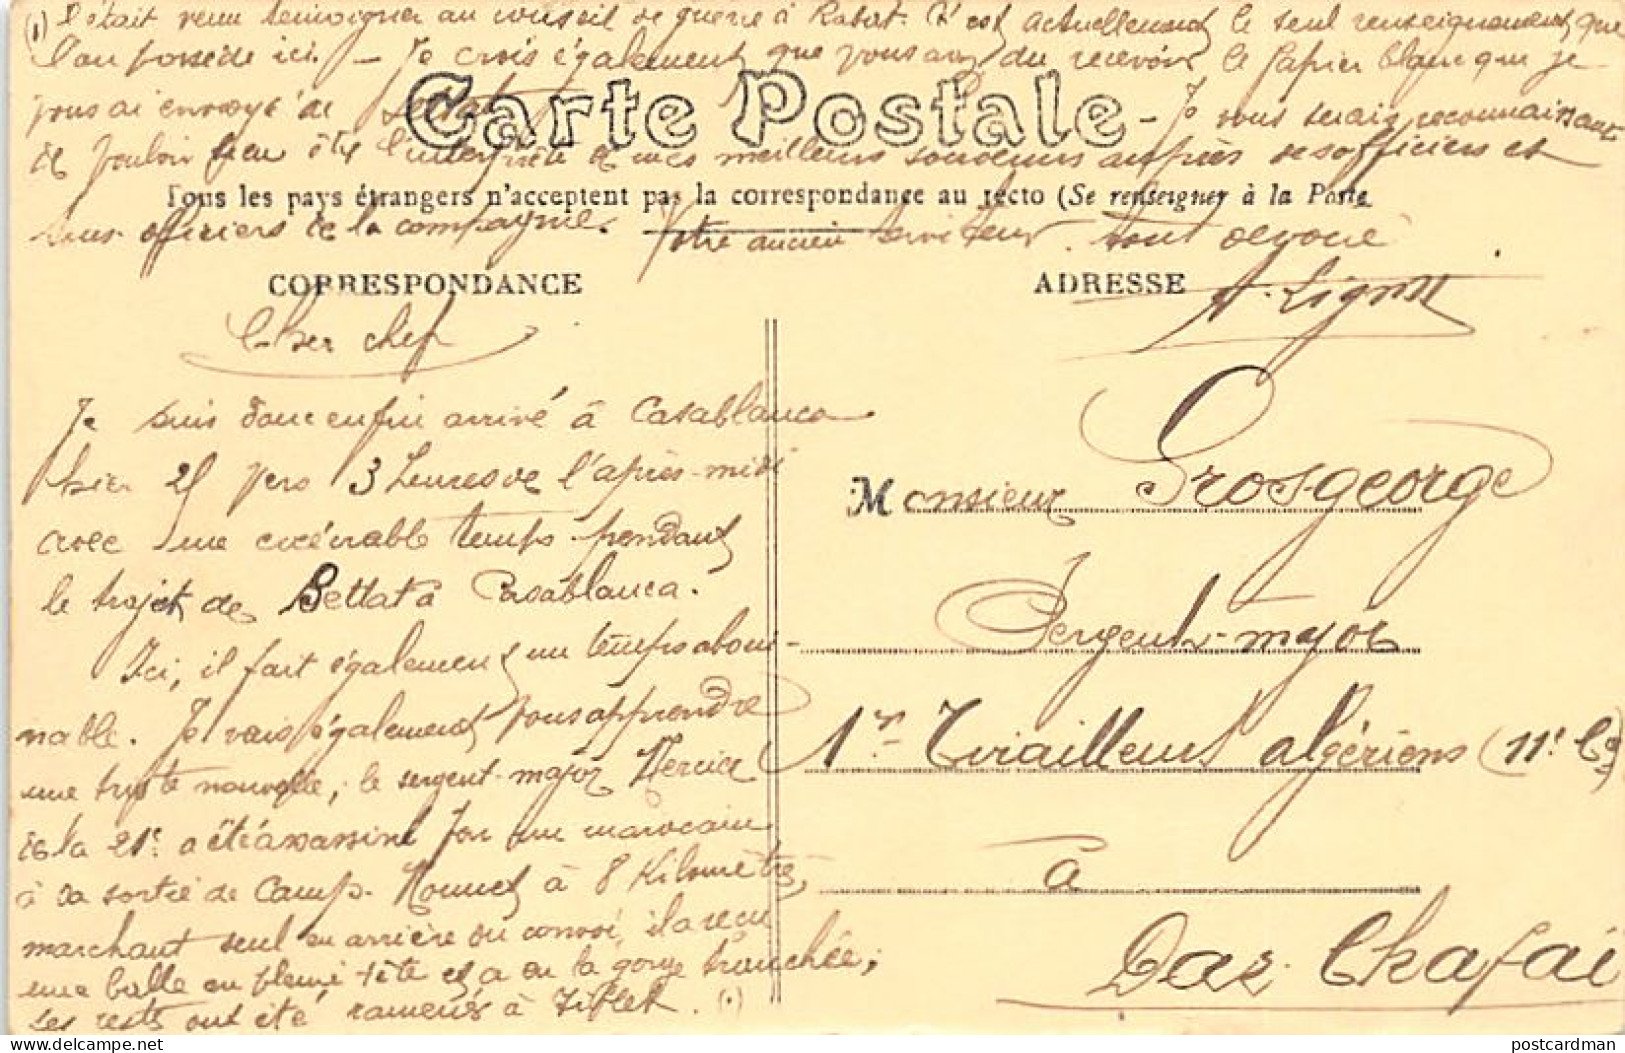 (1) Il était venu témoigner au conseil de guerre à Rabat. C'est actuellement le seul renseignement que
l'on possède ici. — Je crois également que vous avez du recevoir le papier blanc que je
vous ai envoyé de Settat — Je vous serais reconnaissant
de vouloir bien être l'interprète de mes meilleurs souvenirs auprès des officiers et
sous-officiers de la compagnie. Votre ancien serviteur tout dévoué
Carte Postale
Tous les pays étrangers n'acceptent pas la correspondance au recto (Se renseigner à la Poste
CORRESPONDANCE
ADRESSE
Cher chef
Je suis donc enfin arrivé à Casablanca
hier 25 vers 3 heures de l'après-midi
avec une exécrable temps pendant
le trajet de Settat à Casablanca.
Ici, il fait également un temps abomi-
nable. Je vais également vous apprendre
une triste nouvelle; le sergent-major Mercier
de la 21e a été assassiné par un marocain
à sa sortie de Camp-Monnet à 8 Kilomètres,
marchant seul en arrière du convoi, il a reçu
une balle en pleine tête et a eu la gorge tranchée;
ses restes ont été ramenés à Tiflet. (1)
Monsieur Grosgeorge
Sergent-major
1er Tirailleurs algériens (11e Cie)
à
Dar Chafaï
postcardman
www.delcampe.net